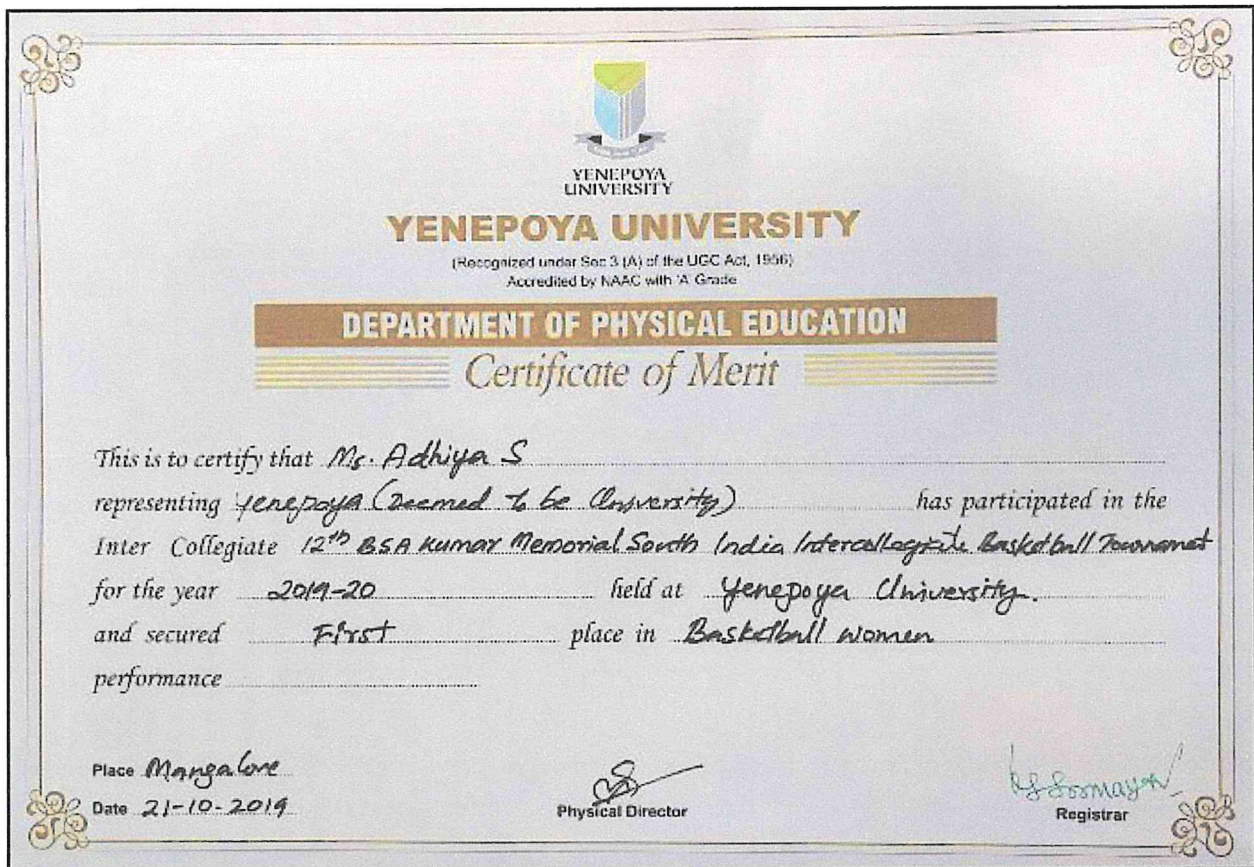 YENEPOYA
UNIVERSITY
YENEPOYA UNIVERSITY
(Recognized under Sec 3 (A) of the UGC Act, 1956)
Accredited by NAAC with 'A' Grade
DEPARTMENT OF PHYSICAL EDUCATION
Certificate of Merit
This is to certify that Ms. Adhiya S
representing Yenepoya (Deemed to be University) has participated in the
Inter Collegiate 12th BSA Kumar Memorial South India Intercollegiate Basketball Tournamet
for the year 2019-20 held at Yenepoya University.
and secured First place in Basketball women
performance
Place Mangalore
Date 21-10-2019
Physical Director
Registrar